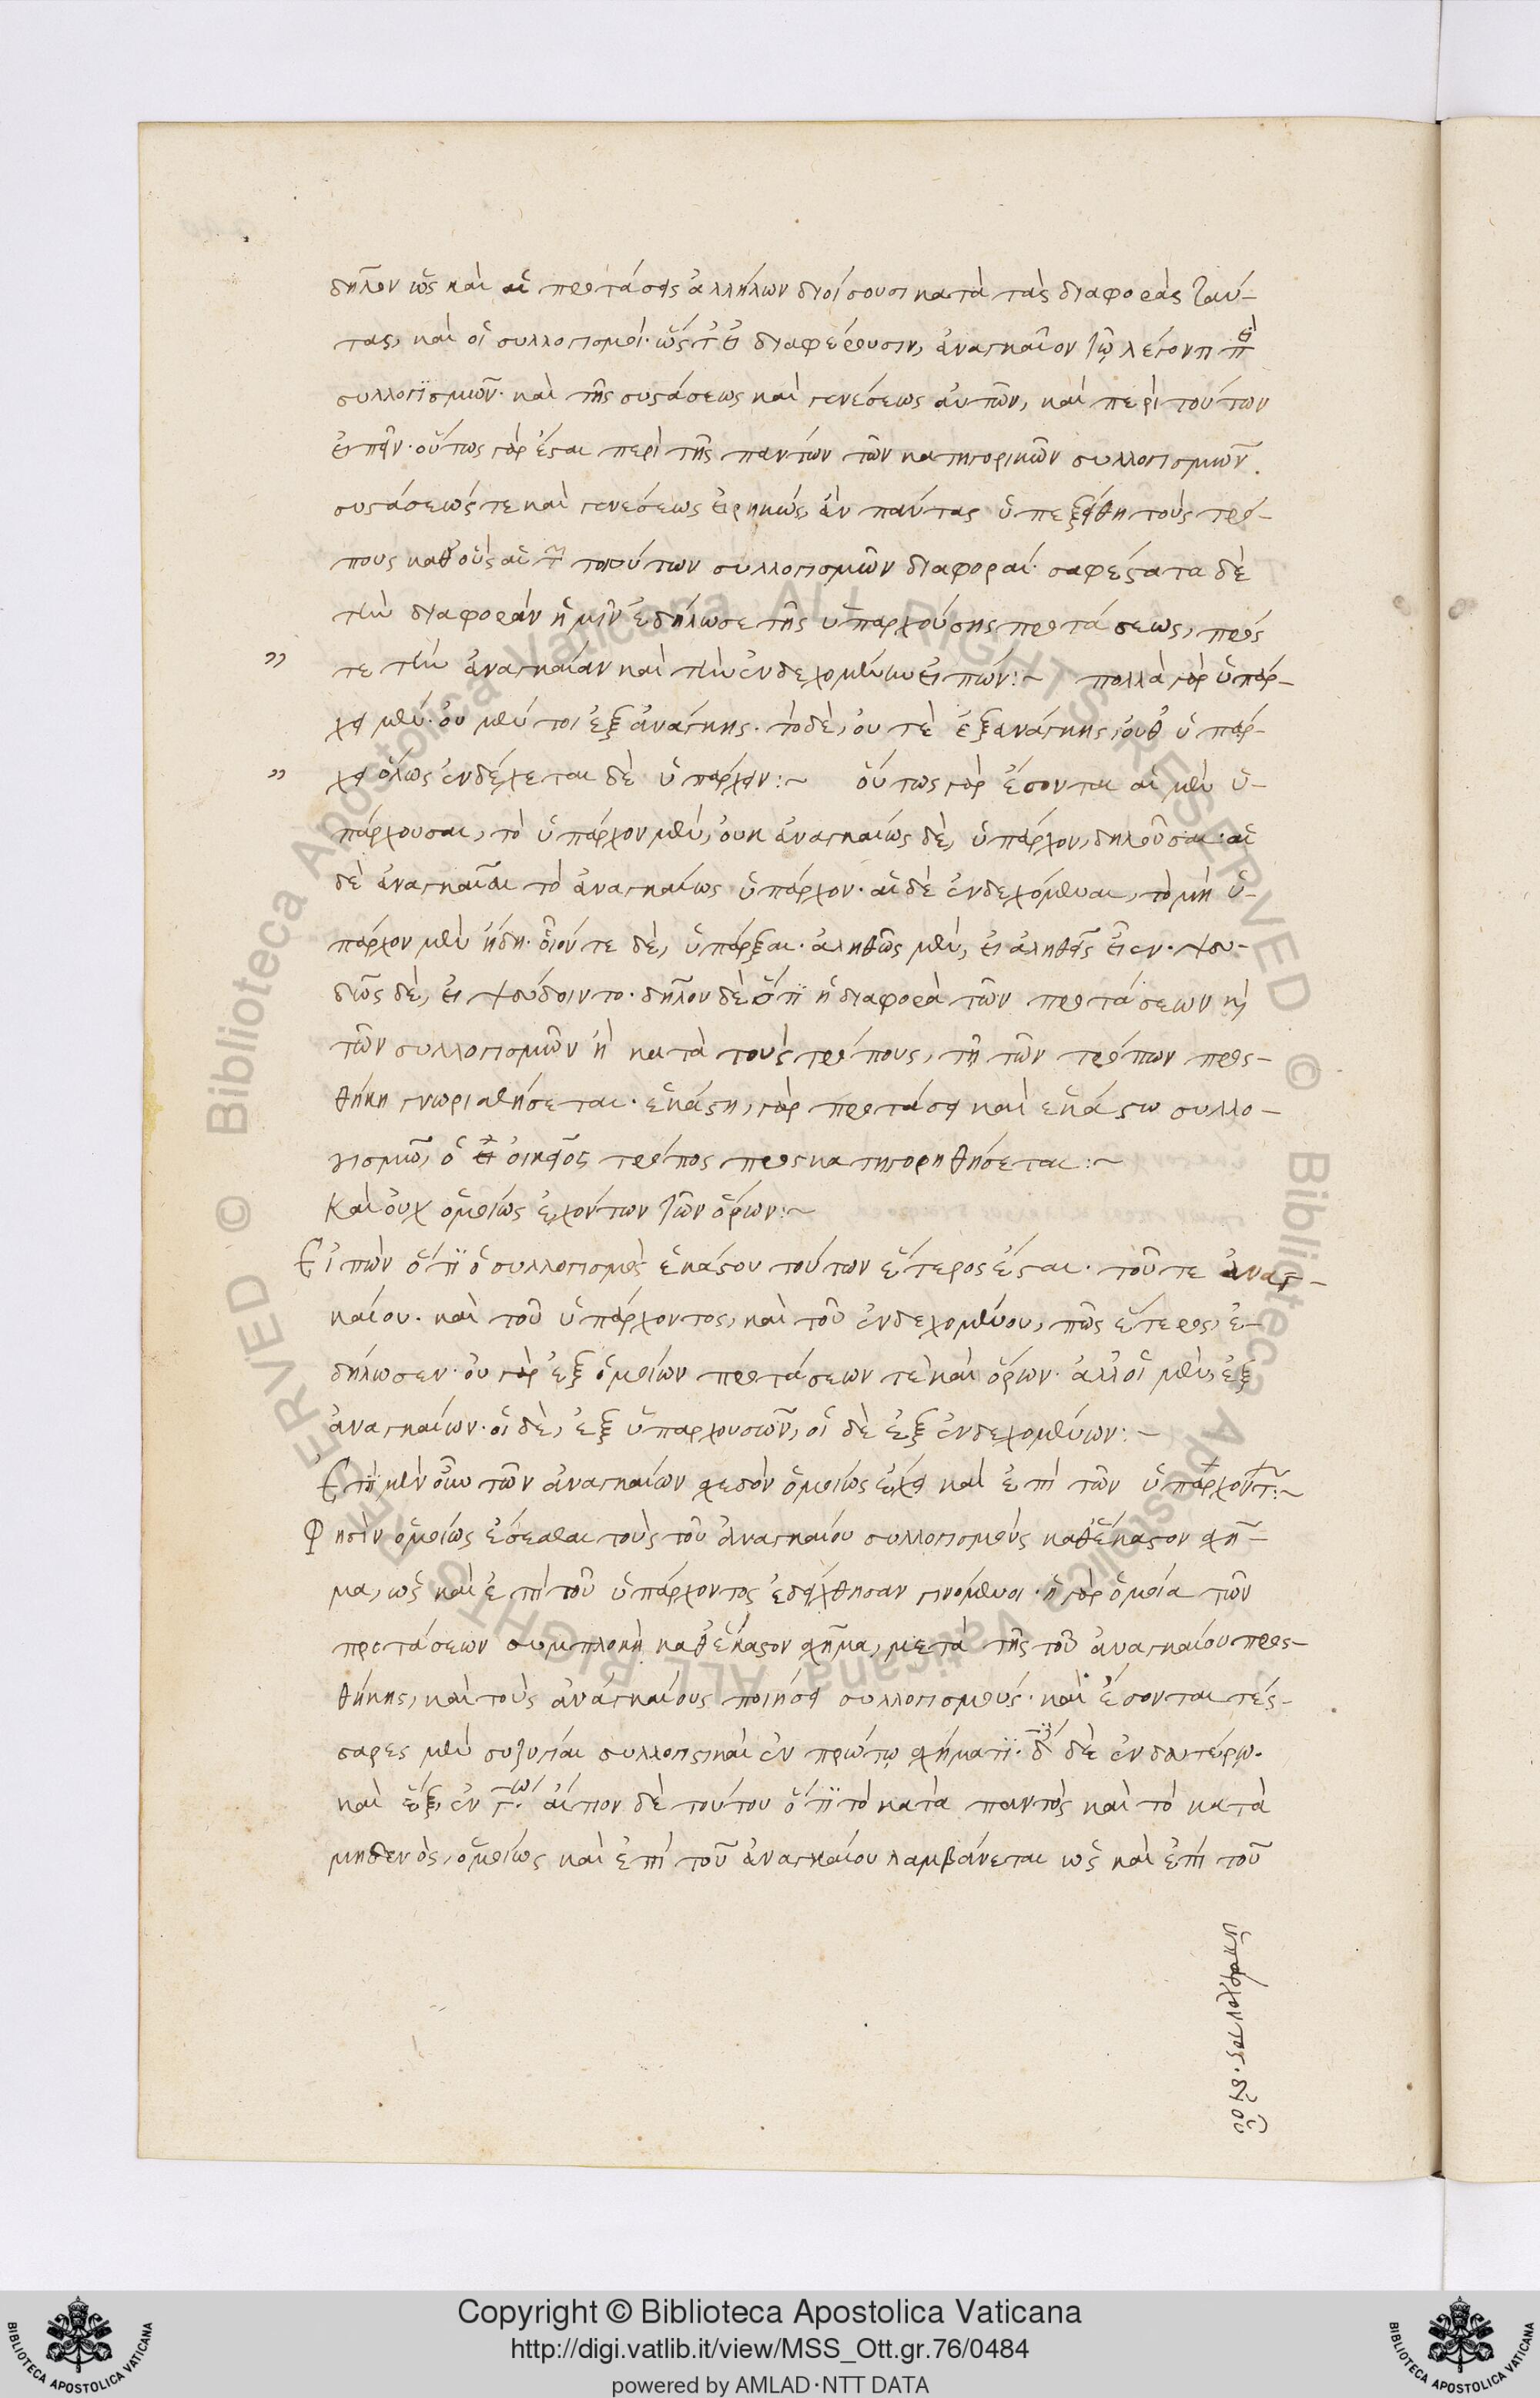 δῆλον ὡς καὶ αἱ προτάσεις ἀλλήλων διοίσουσι κατὰ τὰς διαφορὰς ταύ-
τας, καὶ οἱ συλλογισμοί· ὥστ' εἰ διαφέρουσιν, ἀναγκαῖον τῷ λέγοντι περὶ
συλλογισμῶν· καὶ τῆς συστάσεως καὶ γενέσεως αὐτῶν, καὶ περὶ τούτων
εἰπεῖν· οὕτως γὰρ ἔσται περὶ τῆς πάντων τῶν κατηγορικῶν συλλογισμῶν.
συστάσεώς τε καὶ γενέσεως εἰρηκώς, ἂν πάντας ὑπεξέλθη τοὺς τρό-
πους καθ' οὓς αἱ τῶν τοιούτων συλλογισμῶν διαφοραί· σαφέστατα δὲ
τὴν διαφορὰν ἡμῖν ἐδήλωσε τῆς ὑπαρχούσης προτάσεως, πρός
" τε τὴν ἀναγκαίαν καὶ τὴν ἐνδεχομένην εἰπών:~ πολλὰ γὰρ ὑπάρ-
χει μὲν· οὐ μέντοι ἐξ ἀνάγκης· τὸ δὲ, οὔτε ἐξ ἀνάγκης, οὔθ' ὑπάρ-
" χει ὅλως ἐνδέχεται δὲ ὑπάρχειν:~ οὕτως γὰρ ἔσονται αἱ μὲν ὑ-
πάρχουσαι, τὸ ὑπάρχον μὲν, οὐκ ἀναγκαίως δὲ, ὑπάρχον, δηλοῦσαι· αἱ
δὲ ἀναγκαῖαι τὸ ἀναγκαίως ὑπάρχον· αἱ δὲ ἐνδεχόμεναι, τὸ μὴ ὑ-
πάρχον μὲν ἤδη· οἷόν τε δὲ, ὑπάρξαι· ἀληθῶς μὲν, εἰ ἀληθεῖς εἶεν· ψευ-
δῶς δὲ, εἰ ψεύδοιντο· δῆλον δὲ ὅτι ἡ διαφορὰ τῶν προτάσεων καὶ
τῶν συλλογισμῶν ἡ κατὰ τοὺς τρόπους, τῇ τῶν τρόπων προς-
θήκη γνωρισθήσεται· ἑκάστη γὰρ προτάσει καὶ ἑκάστω συλλο-
γισμῶ, ὁ οἰκεῖος τρόπος προςκατηγορηθήσεται:~
Καὶ οὐχ ὁμοίως ἐχόντων τῶν ὅρων:~
Εἰπὼν ὅτι ὁ συλλογισμὸς ἑκάστου τούτων ἕτερος ἔσται· τοῦ τε ἀναγ-
καίου· καὶ τοῦ ὑπάρχοντος, καὶ τοῦ ἐνδεχομένου, πῶς ἕτερος, ἐ-
δήλωσεν· οὐ γὰρ ἐξ ὁμοίων προτάσεων τε καὶ ὅρων· ἀλλ' οἱ μὲν, ἐξ
ἀναγκαίων· οἱ δὲ, ἐξ ὑπαρχουσῶν, οἱ δὲ ἐξ ἐνδεχομένων:~
Ἐπὶ μὲν οὖν τῶν ἀναγκαίων σχεδὸν ὁμοίως ἔχει καὶ ἐπὶ τῶν ὑπαρχόντων:~
Φησὶν ὁμοίως ἔσεσθαι τοὺς τοῦ ἀναγκαίου συλλογισμοὺς καθ' ἕκαστον σχῆ-
μα, ὡς καὶ ἐπὶ τοῦ ὑπάρχοντος ἐδείχθησαν γινόμενοι· ἡ γὰρ ὁμοία τῶν
προτάσεων συμπλοκὴ καθ' ἕκαστον σχῆμα, μετὰ τῆς τοῦ ἀναγκαίου προς-
θήκης, καὶ τοὺς ἀναγκαίους ποιήσει συλλογισμούς· καὶ ἔσονται τές-
σαρες μὲν συζυγίαι συλλογιστικαὶ ἐν πρώτω σχήματι· δ' δὲ ἐν δευτέρω·
καὶ ἓξ, ἐν γω· αἴτιον δὲ τούτου ὅτι τὸ κατὰ παντὸς καὶ τὸ κατὰ
μηδενὸς, ὁμοίως καὶ ἐπὶ τοῦ ἀναγκαίου λαμβάνεται ὡς καὶ ἐπὶ τοῦ
ὑπάρχοντος·
Copyright © Biblioteca Apostolica Vaticana
http://digi.vatlib.it/view/MSS_Ott.gr.76/0484
powered by AMLAD·NTT DATA
BIBLIOTECA APOSTOLICA VATICANA
BIBLIOTECA APOSTOLICA VATICANA
© Biblioteca Apostolica Vaticana ALL RIGHTS RESERVED
© Biblioteca Apostolica Vaticana ALL RIGHTS RESERVED